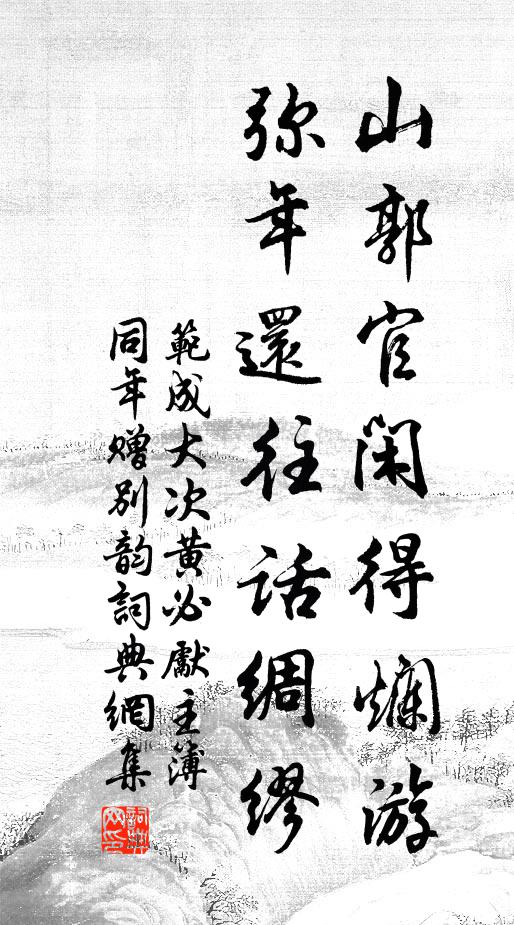 山郭官闲得爛游
弥年還往話綢繆
範成大次黄必獻主簿
同年赠别韵詞典網集